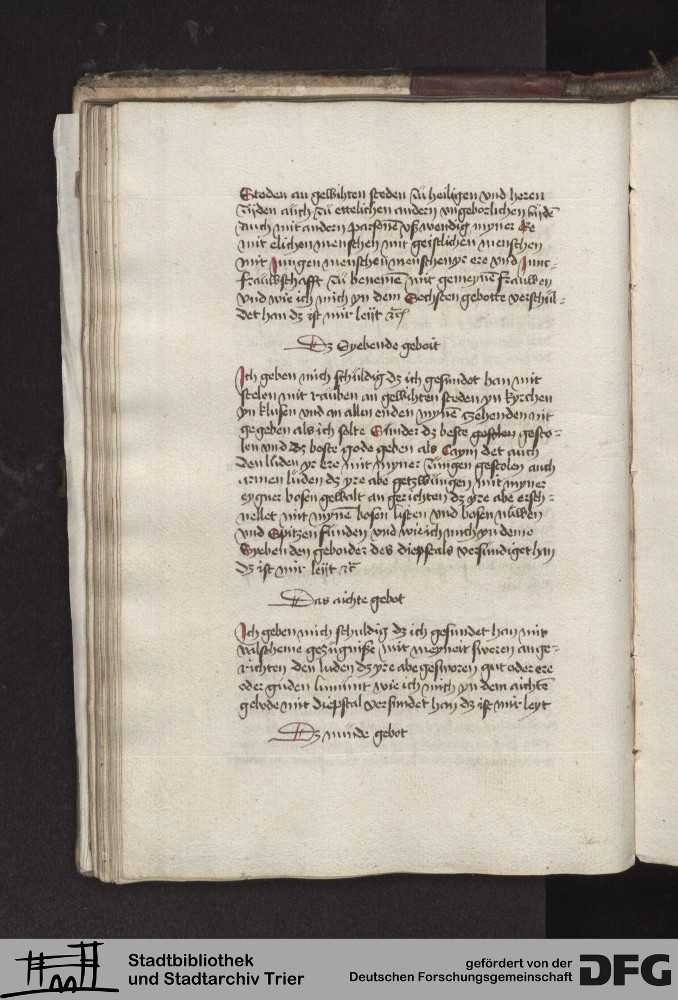 Steden an gewihten steden zü heiligen vnd heren
zijden auch zü ettelichen andern vngeborlichen
auch mit andern parsonē vßwendig myner Ee
mit elichen menschen mit geistlichen menschen
mit Jungen menschen menschen yr ere vnd Junc-
frauwschafft zü benemē mit gemeynē frauwen
vnd wie ich mich yn dem Sechsten gebotte verschul-
det han dz ist mir leijt
Dz Syebende geboit
Ich geben mich schuldig dz ich gesundet han mit
stelen mit rauben an gewihten steden yn kyrchen
yn klusen vnd an allen enden mynē czehenden nit
gegeben als ich solte Sunder dz beste gesto-
len vnd dz boste gode geben als Caym det auch
den luden yr ere mit myner züngen gestolen auch
armen luden dz yre abe getzwüngen mit myner
eygner bosen gewalt an gerichten dz yre abe ersch-
nellet mit mynē bosen listen vnd bosen willen
vnd Spitzen funden vnd wie ich mich yn deme
Syebenden geboide des diepstals versundiget han
dz ist mir leijt
Das aichte gebot
Ich geben mich schuldig dz ich gesundet han mit
valscheme gezügniße mit meyneit sweren an ge-
richten den luden dz yre abe gesworen gut oder ere
oder guden limunt wie ich mich yn dem aichtē
gebode mit diepstal versundet han dz ist mir leyt
Dz nünde gebot
Stadtbibliothek
und Stadtarchiv Trier
gefördert von der
Deutschen Forschungsgemeinschaft
DFG